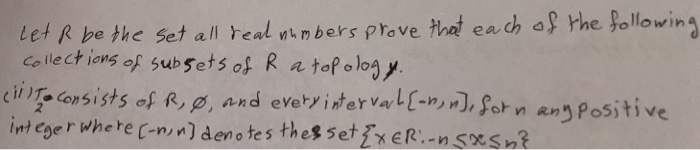 Let R be the set all real numbers prove that each of the following
collections of subsets of R a topology.
(ii) T₂ consists of R, ∅, and every interval [-n,n], for n any positive
integer where [-n,n] denotes the set {x∈R:-n≤x≤n}